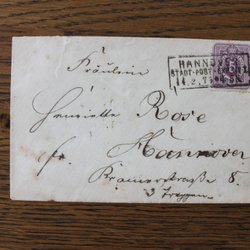 HANNOVER
STADT-POST-EXP.
Fräulein
Henriette Rose
fr. Hannover
Kramerstraße 8.
3 Treppen